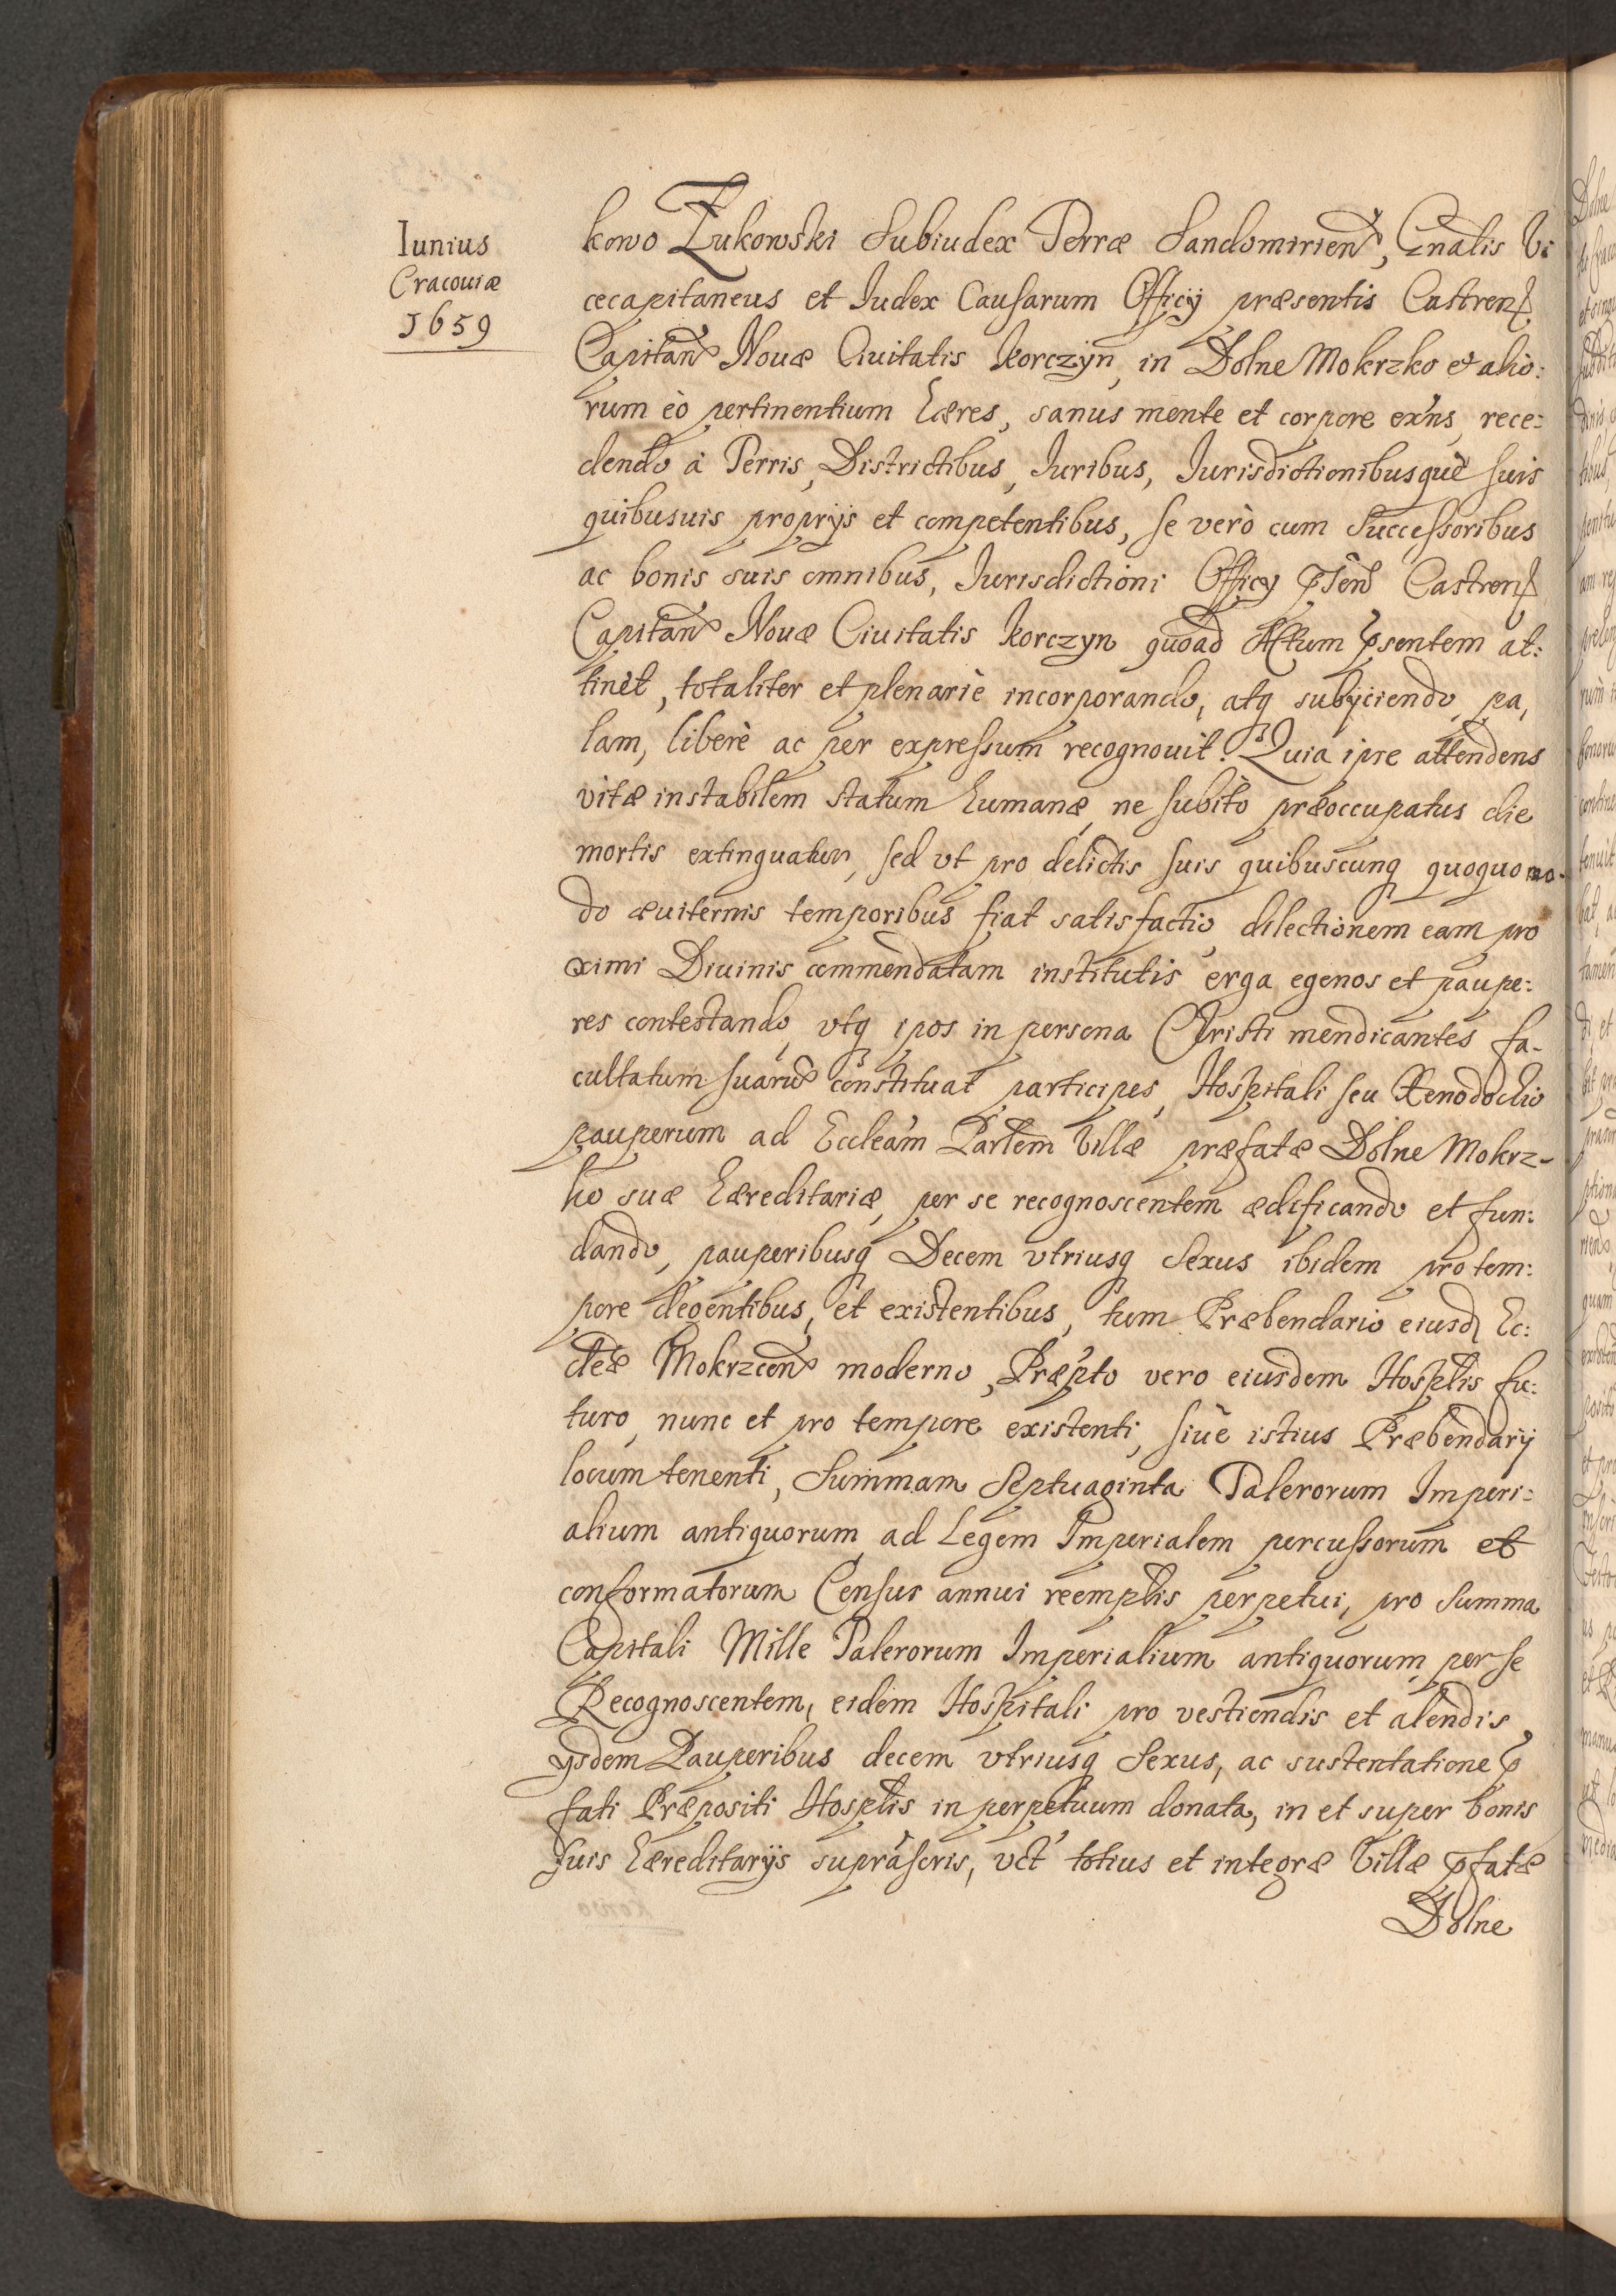 Iunius
Cracouiæ
1659
kowo Żukowski Subiudex Terræ Sandomirien̄, Gn̄alis Vi
cecapitaneus et Iudex Causarum Officÿ præsentis Castren̄
Capitan̄ Nouæ Ciuitatis Korczyn, in Dolne Mokrzko et alio:
rum eò pertinentium hæres, sanus mente et corpore exn̄s, rece:
dendo à Terris, Districtibus, Iuribus, Iurisdictionibusquè suis
quibusuis proprÿs et competentibus, se verò cum Successoribus
ac bonis suis omnibus, Iurisdictioni Officÿ p̄sen̄ Castren̄
Capitan̄ Nouæ Ciuitatis Korczyn quoad Actum p̄sentem at:
tinèt, totaliter et plenariè incorporando, atq subÿciendo, pa,
lam, liberè ac per expressum recognouit. Quia ipse attendens
vitæ instabilem statum humanæ, ne subitò præoccupatus die
mortis extinguatur, sed vt pro delictis suis quibuscunq quoquo mo-
do æuiternis temporibus fiat satisfactio, dilectionem eam pro
ximi Diuinis commendatam institutis erga egenos et paupe:
res contestando, vtq ipos in persona Christi mendicantes fa-
cultatum suarū constituat participes, Hospitali seu Xenodochio
pauperum ad Eccleām Partem Villæ præfatæ Dolne Mokrz-
ko suæ hæreditariæ, per se recognoscentem ædificando et fun:
dando, pauperibusq Decem vtriusq Sexus ibidem pro tem:
pore degentibus, et existentibus, tum Præbendario eiusd Ec:
cleæ Mokrzcen̄ moderno, Præpto vero eiusdem Hosplis fu:
turo, nunc et pro tempore existenti, siuè istius Præbendarÿ
locum tenenti, Summam Septuaginta Talerorum Imperi:
alium antiquorum ad Legem Imperialem percussorum et
conformatorum Census annui reemplis perpetui, pro Summa
Capitali Mille Talerorum Imperialium antiquorum per se
Recognoscentem, eidem Hospitali pro vestiendis et alendis
ÿsdem Pauperibus decem vtriusq Sexus, ac sustentatione p̄
fati Præpositi Hosplis in perpetuum donata, in et super bonis
suis hæreditarÿs suprascris, vct totius et integræ Villæ p̄fatæ
Dolne